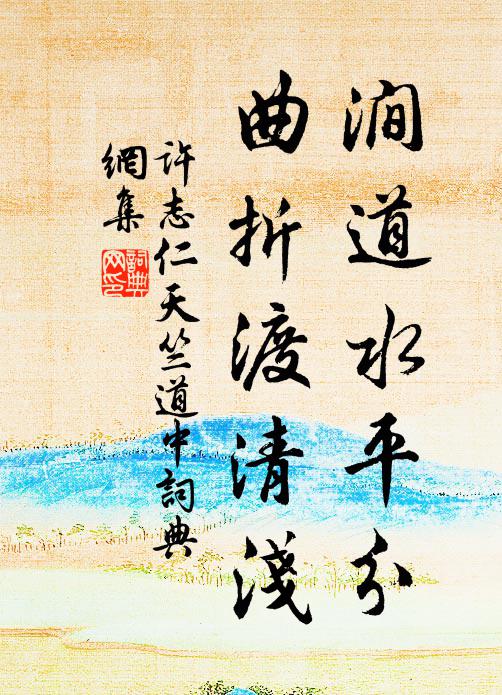 澗道水平分
曲折渡清淺
許志仁天竺道中詞典
網集
詞典
网印